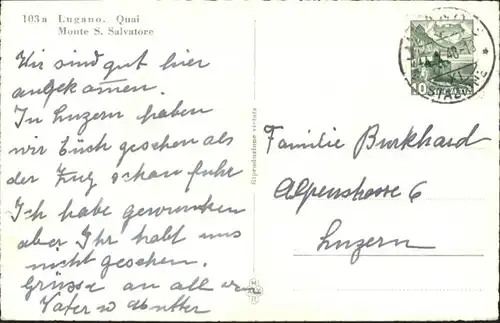 103a Lugano. Quai
Monte S. Salvatore
Wir sind gut hier
angekommen.
In Luzern haben
wir Euch gesehen als
der Zug schon fuhr
Ich habe gewunken
aber Ihr habt uns
nicht gesehen.
Grüsse an all von
Vater u Mutter
Riproduzione vietata
10
Familie Burkhard
Alpenstrasse 6
Luzern